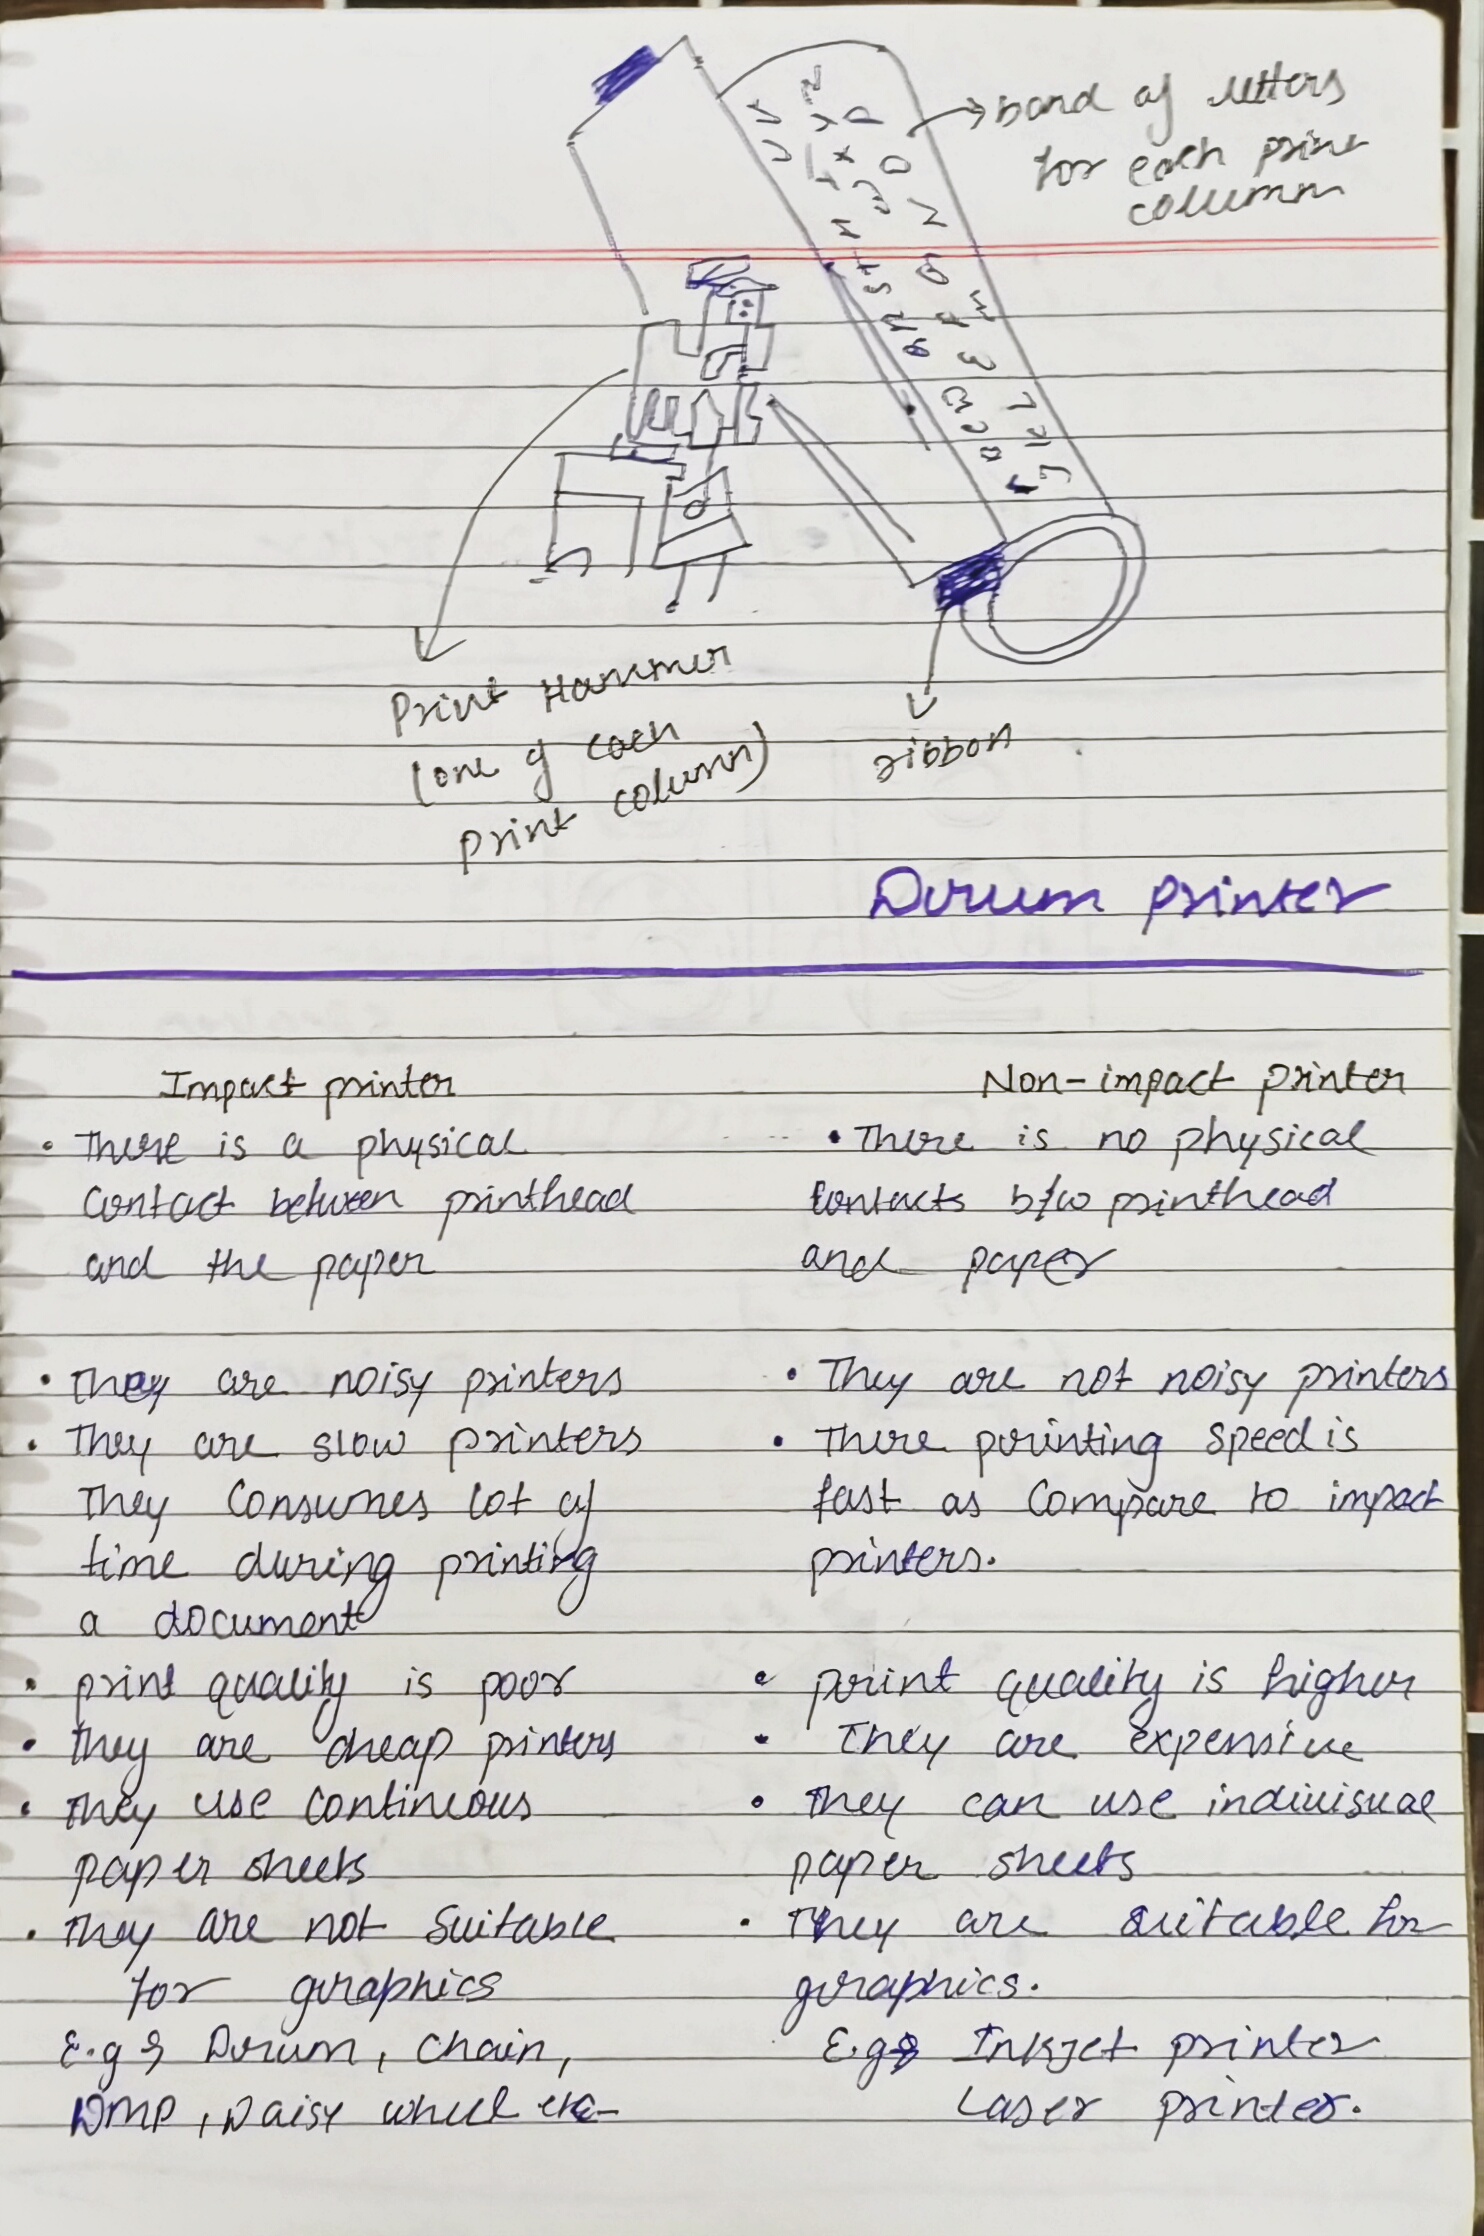 band of letters
for each print
column
Print Hammer
(one of each
print column)
ribbon
Drum printer
Impact printer
• There is a physical
contact between printhead
and the paper
• They are noisy printers
• They are slow printers
They consumes lot of
time during printing
a document
• print quality is poor
• They are cheap printers
• They use continuous
paper sheets
• They are not suitable
for graphics
E.g : Drum, chain,
DMP, Daisy wheel etc-
Non-impact printer
• There is no physical
contacts b/w printhead
and paper
• They are not noisy printers
• There printing speed is
fast as compare to impact
printers.
• print quality is higher
• They are expensive
• They can use indivisual
paper sheets
• They are suitable for
graphics.
E.g : Inkjet printer
Laser printer.